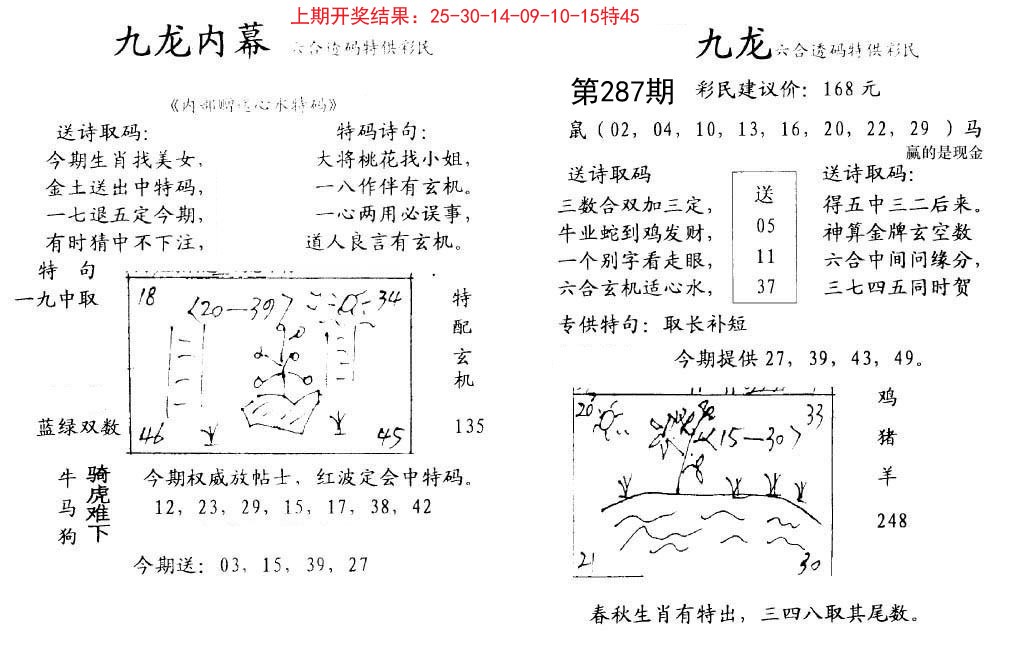 上期开奖结果：25-30-14-09-10-15特45
九龙内幕 六合透码特供彩民
《内部赠送心水特码》
送诗取码：
今期生肖找美女，
金土送出中特码，
一七退五定今期，
有时猜中不下注，
特码诗句：
大将桃花找小姐，
一八作伴有玄机。
一心两用必误事，
道人良言有玄机。
特 句
一九中取
蓝绿双数
18
〈20—39〉
34
46
45
特
配
玄
机
135
牛
马
狗
骑
虎
难
下
今期权威放帖士，红波定会中特码。
12，23，29，15，17，38，42
今期送：03，15，39，27
九龙 六合透码特供彩民
第287期 彩民建议价：168元
鼠（02，04，10，13，16，20，22，29 ）马
赢的是现金
送诗取码
三数合双加三定，
牛业蛇到鸡发财，
一个别字看走眼，
六合玄机适心水，
送
05
11
37
送诗取码：
得五中三二后来。
神算金牌玄空数
六合中间问缘分，
三七四五同时贺
专供特句：取长补短
今期提供27，39，43，49。
20
33
〈15—30〉
21
30
鸡
猪
羊
248
春秋生肖有特出，三四八取其尾数。